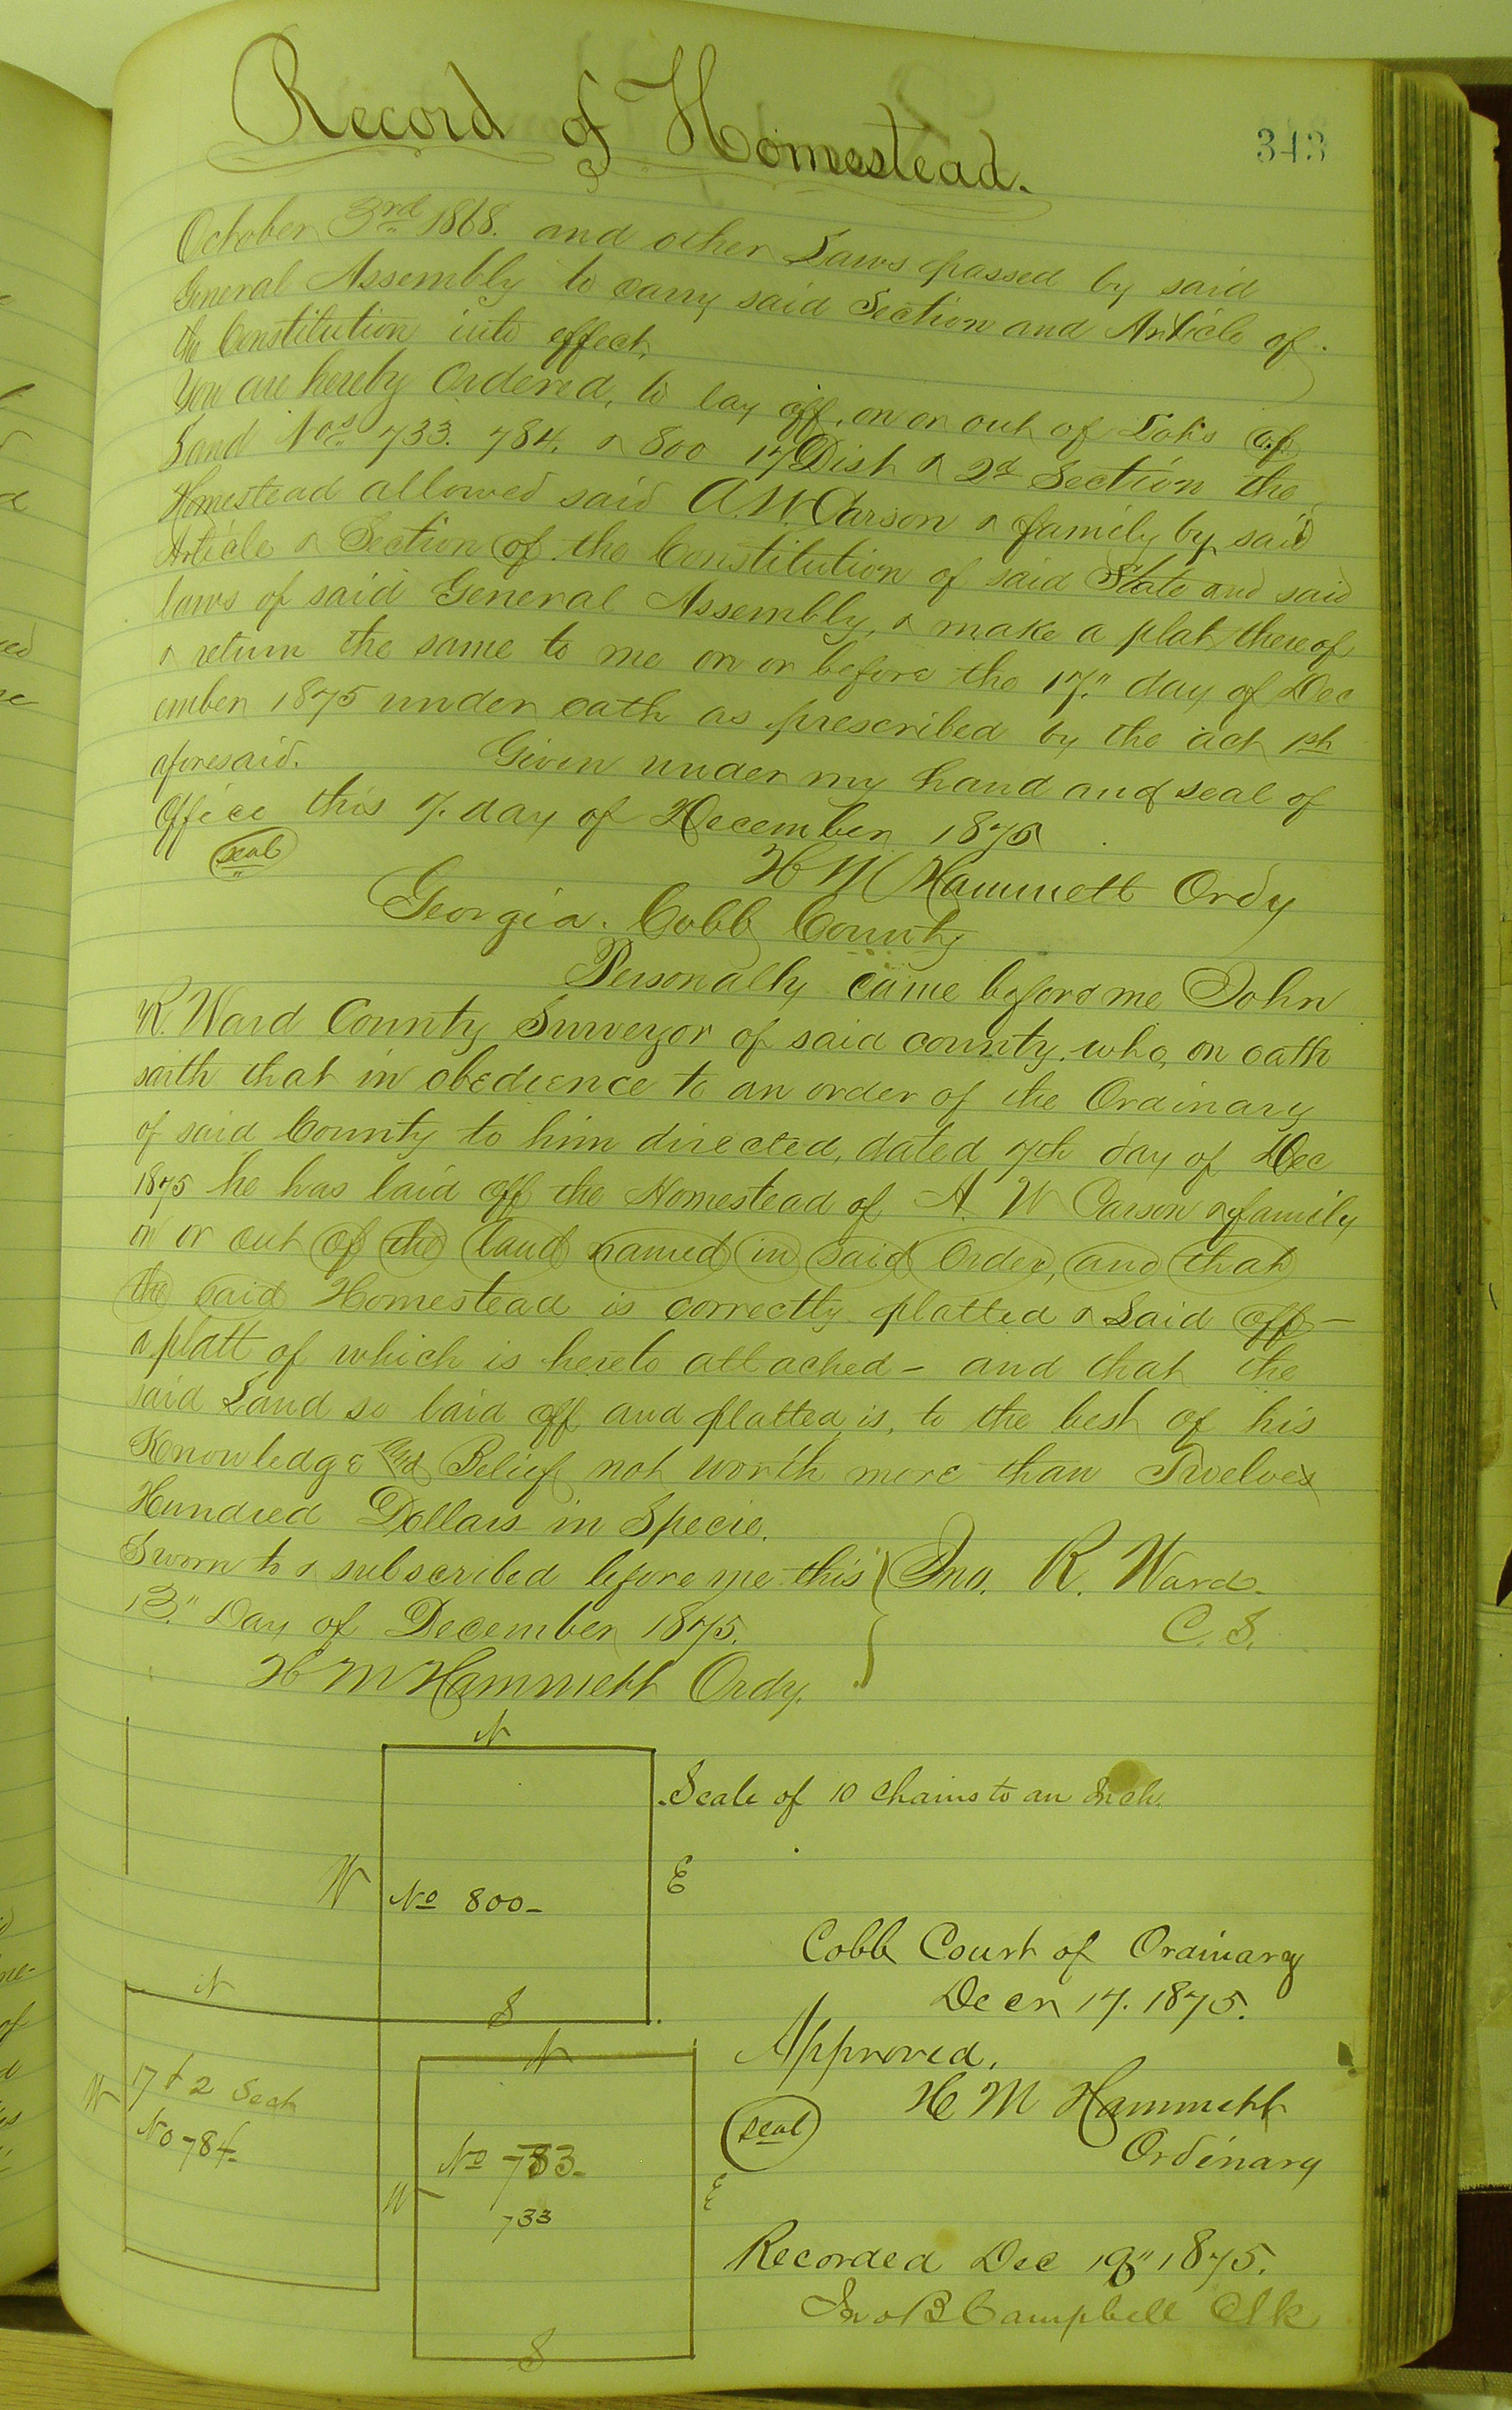 Record of Homestead.
343
October 3rd 1868. and other Laws passed by said
General Assembly to carry said Section and Article of
the Constitution into effect,
You are hereby Ordered, to lay off, on or out of Lots of
Land Nos 733. 784. & 800 17 Dist & 2d Section the
Homestead allowed said A. W. Carson & family by said
Article & Section of the Constitution of said State and said
laws of said General Assembly, & make a plat thereof
& return the same to me on or before the 17" day of Dec
ember 1875 under oath as prescribed by the act 1st
aforesaid. Given under my hand and seal of
Office this 7. day of December 1875
seal
H M Hammett Ordy
Georgia. Cobb County
Personally came before me John
R. Ward County Surveyor of said county. who, on oath
saith that in obedience to an order of the Ordinary
of said County to him directed, dated 7th day of Dec
1875 he has laid off the Homestead of A. W Carson & family,
in or out of the land named in said Order, and that
the said Homestead is correctly platted & Laid off —
a platt of which is hereto attached – and that the
said Land so laid off and platted is, to the best of his
Knowledge and Belief not worth more than Twelve
Hundred Dollars in Specie.
Sworn to & subscribed before me this Jno. R. Ward.
13." Day of December 1875. C. S.
H M Hammett Ordy.
N
Scale of 10 Chains to an Inch.
W No 800 – E
S
Cobb Court of Ordinary
Decr 17. 1875.
Approved.
H M Hammett
Ordinary
seal
N
W 17 & 2 Sect
No 784
N
No 783 –
733
W E
S
Recorded Dec 1875.
Jno B Campbell Clk